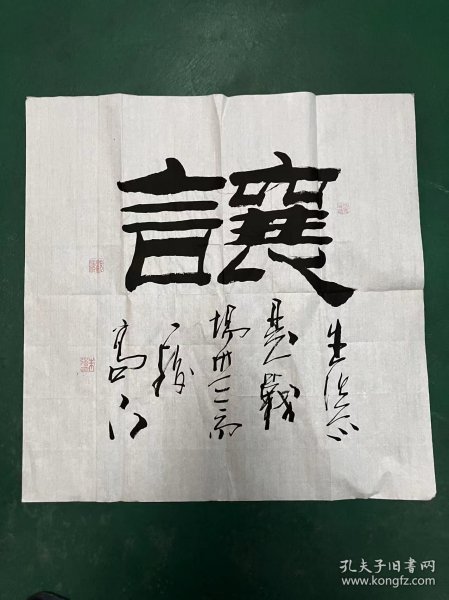 讓
生活不
是戰
場無
一較
高下
孔夫子旧书网
www.kongfz.com